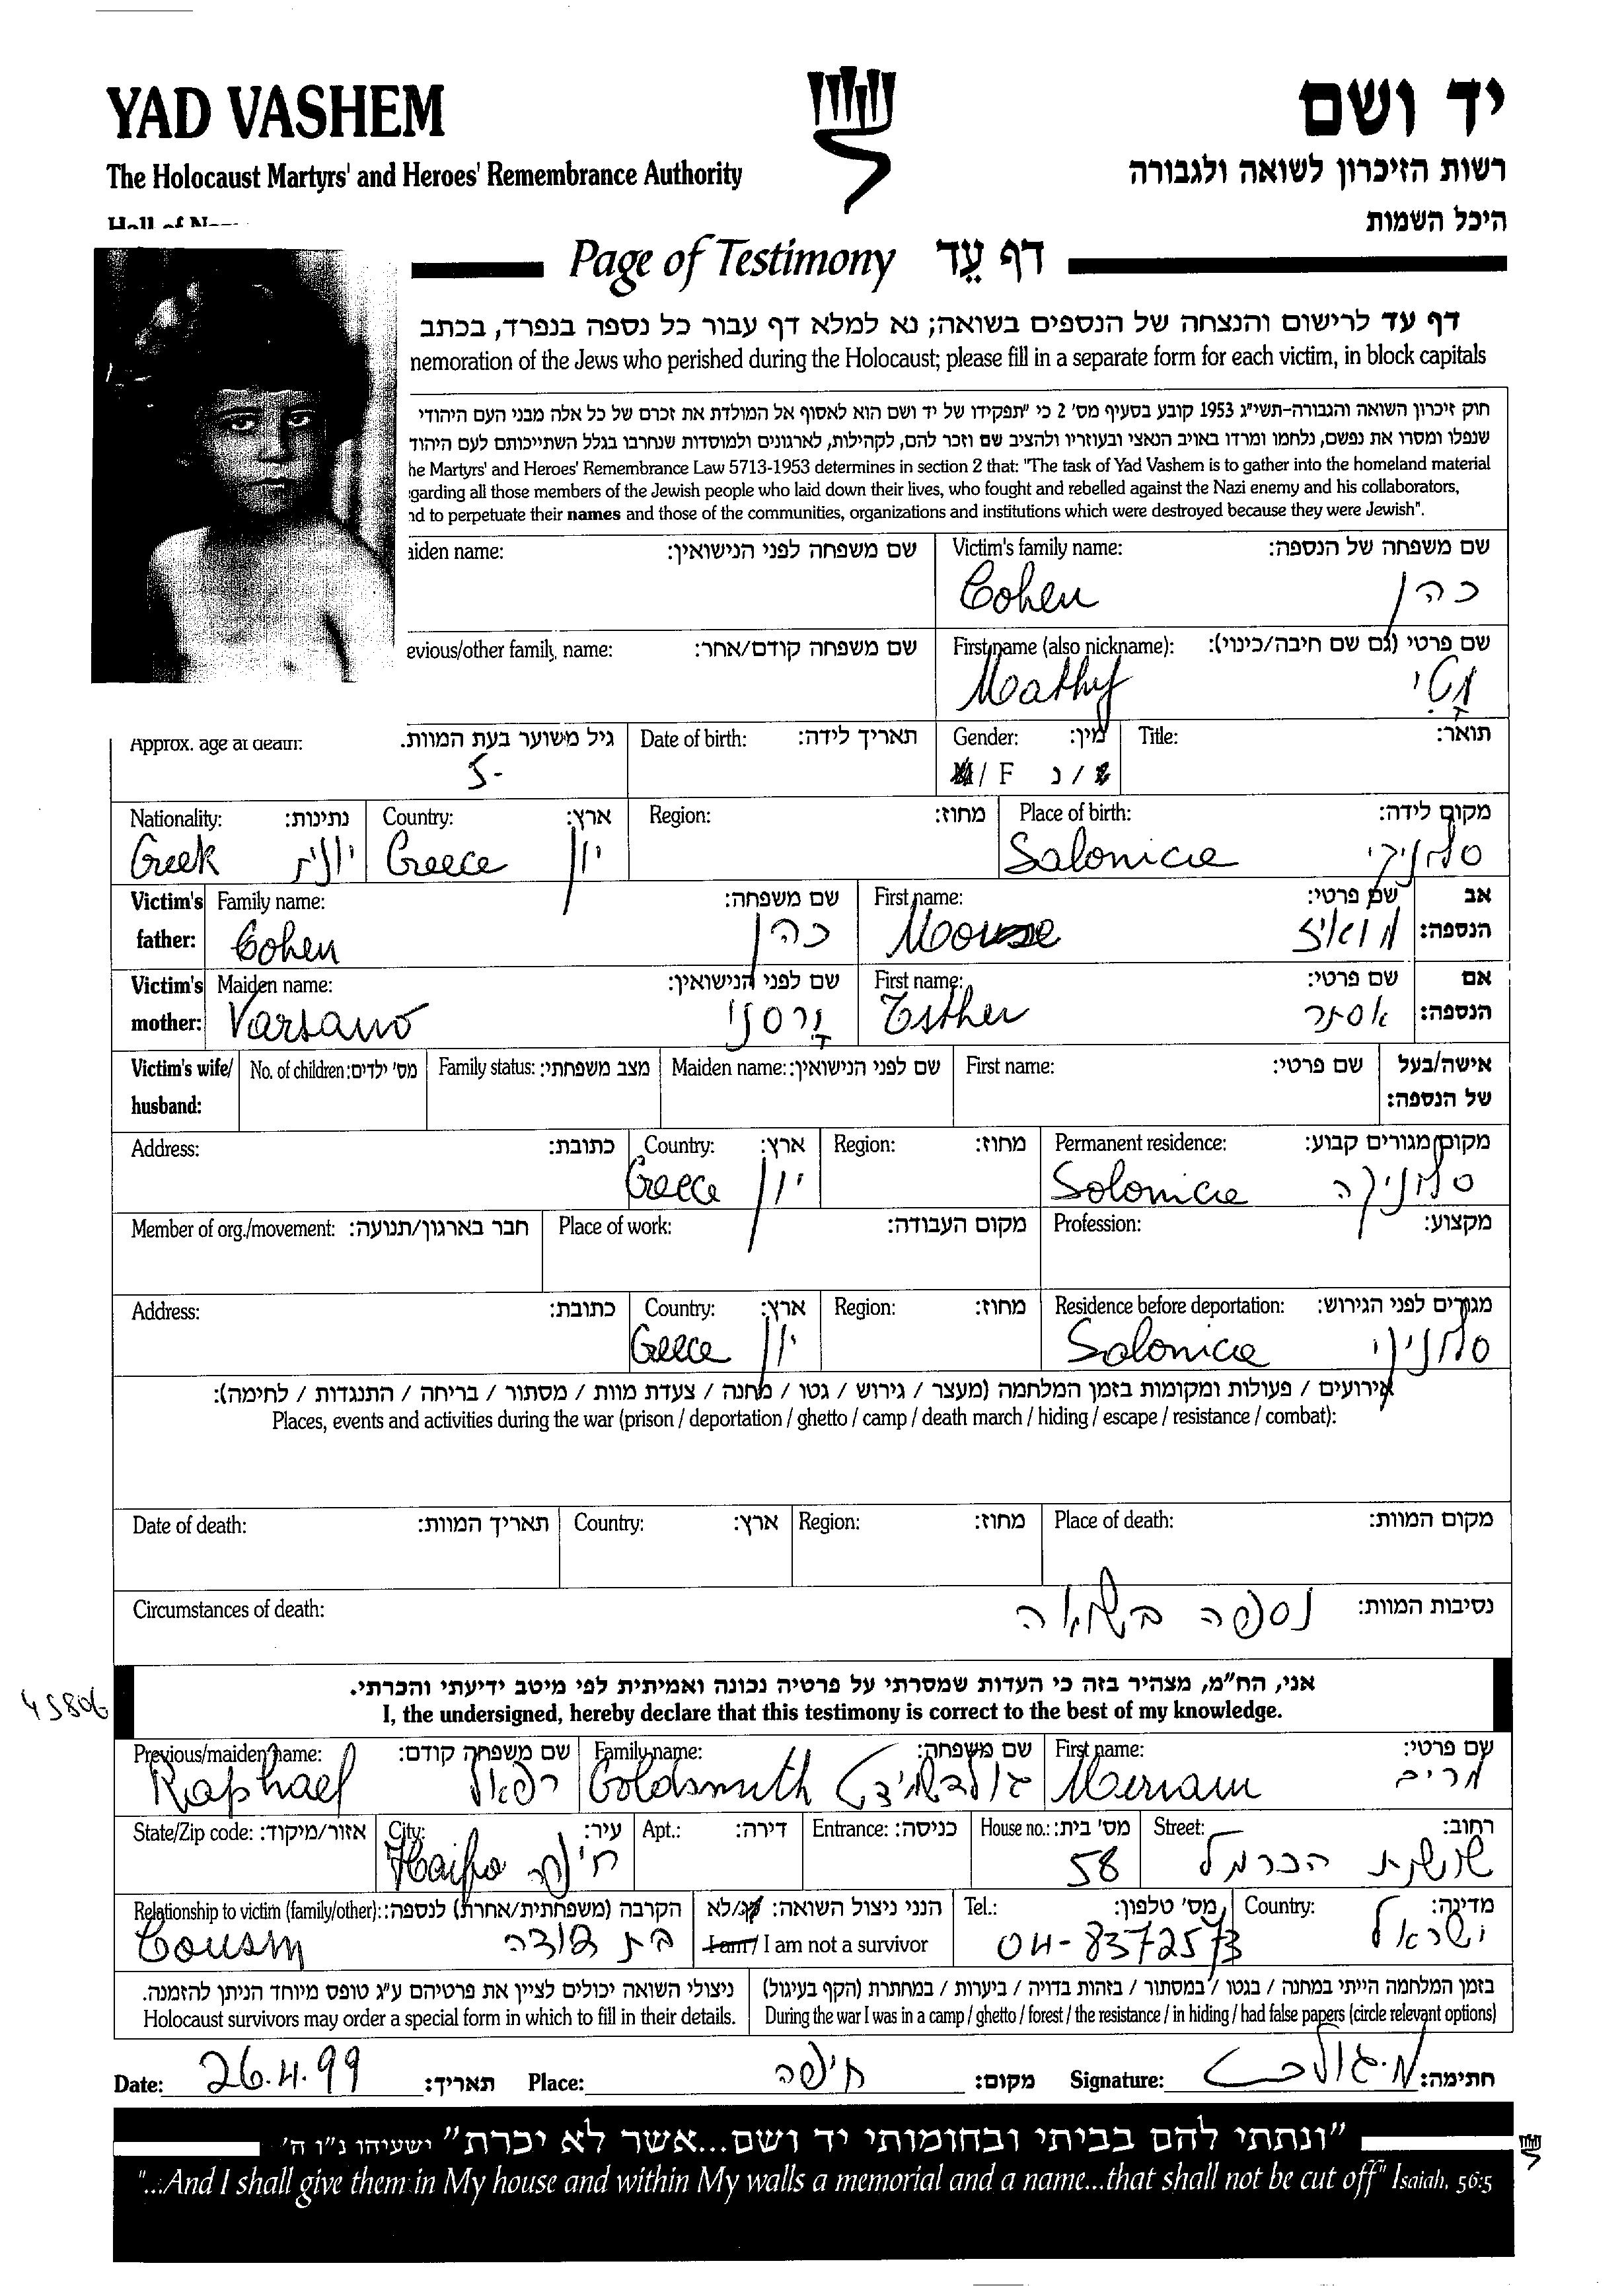 YAD VASHEM
יד ושם
The Holocaust Martyrs' and Heroes' Remembrance Authority
רשות הזיכרון לשואה ולגבורה
Hall of
היכל השמות
Page of Testimony דף עֵד
דף עד לרישום והנצחה של הנספים בשואה; נא למלא דף עבור כל נספה בנפרד, בכתב
nemoration of the Jews who perished during the Holocaust; please fill in a separate form for each victim, in block capitals
חוק זיכרון השואה והגבורה-תשי״ג 1953 קובע בסעיף מס׳ 2 כי ״תפקידו של יד ושם הוא לאסוף אל המולדת את זכרם של כל אלה מבני העם היהודי
שנפלו ומסרו את נפשם, נלחמו ומרדו באויב הנאצי ובעוזריו ולהציב שם וזכר להם, לקהילות, לארגונים ולמוסדות שנחרבו בגלל השתייכותם לעם היהוד
he Martyrs' and Heroes' Remembrance Law 5713-1953 determines in section 2 that: "The task of Yad Vashem is to gather into the homeland material
garding all those members of the Jewish people who laid down their lives, who fought and rebelled against the Nazi enemy and his collaborators,
nd to perpetuate their names and those of the communities, organizations and institutions which were destroyed because they were Jewish".
aiden name: שם משפחה לפני הנישואין: Victim's family name: שם משפחה של הנספה:
Cohen כהן
evious/other family name: שם משפחה קודם/אחר: First name (also nickname): שם פרטי (גם שם חיבה/כינוי):
Mathy מטי
Approx. age at death: גיל משוער בעת המוות. Date of birth: תאריך לידה: Gender: מין: Title: תואר:
5- M/ F ז / נ
Nationality: נתינות: Country: ארץ: Region: מחוז: Place of birth: מקום לידה:
Greek יוונית Greece יוון Salonicie סלוניקי
Victim's father: Family name: שם משפחה: First name: שם פרטי: אב הנספה:
Cohen כהן Mouse מואיז
Victim's mother: Maiden name: שם לפני הנישואין: First name: שם פרטי: אם הנספה:
Varsano ורסנו Esther אסתר
Victim's wife/ husband: No. of children: מס׳ ילדים: Family status: מצב משפחתי: Maiden name: שם לפני הנישואין: First name: שם פרטי: אישה/בעל של הנספה:
Address: כתובת: Country: ארץ: Region: מחוז: Permanent residence: מקום מגורים קבוע:
Greece יוון Solonicie סלוניקה
Member of org./movement: חבר בארגון/תנועה: Place of work: מקום העבודה: Profession: מקצוע:
Address: כתובת: Country: ארץ: Region: מחוז: Residence before deportation: מגורים לפני הגירוש:
Greece יוון Salonicie סלוניקי
אירועים / פעולות ומקומות בזמן המלחמה (מעצר / גירוש / גטו / מחנה / צעדת מוות / מסתור / בריחה / התנגדות / לחימה):
Places, events and activities during the war (prison / deportation / ghetto / camp / death march / hiding / escape / resistance / combat):
Date of death: תאריך המוות: Country: ארץ: Region: מחוז: Place of death: מקום המוות:
Circumstances of death: נספה בשואה נסיבות המוות:
אני, הח״מ, מצהיר בזה כי העדות שמסרתי על פרטיה נכונה ואמיתית לפי מיטב ידיעתי והכרתי.
45806
I, the undersigned, hereby declare that this testimony is correct to the best of my knowledge.
Previous/maiden name: שם משפחה קודם: Family name: שם משפחה: First name: שם פרטי:
Raphael רפאל Goldsmith גולדשמידט Meriam מרים
State/Zip code: אזור/מיקוד: City: עיר: Apt.: דירה: Entrance: כניסה: House no.: מס׳ בית: Street: רחוב:
Haifa חיפה 58 שושנת הכרמל
Relationship to victim (family/other): הקרבה (משפחתית/אחרת) לנספה: הנני ניצול השואה: כן/לא Tel.: מס׳ טלפון: Country: מדינה:
Cousin בת דודה I am / I am not a survivor 04-8372573 ישראל
ניצולי השואה יכולים לציין את פרטיהם ע״ג טופס מיוחד הניתן להזמנה. בזמן המלחמה הייתי במחנה / בגטו / במסתור / בזהות בדויה / ביערות / במחתרת (הקף בעיגול)
Holocaust survivors may order a special form in which to fill in their details. During the war I was in a camp / ghetto / forest / the resistance / in hiding / had false papers (circle relevant options)
Date: 26.4.99 תאריך: Place: חיפה מקום: Signature: חתימה:
״ונתתי להם בביתי ובחומותי יד ושם...אשר לא יכרת״ ישעיהו נ״ו ה׳
"...And I shall give them in My house and within My walls a memorial and a name...that shall not be cut off" Isaiah, 56:5